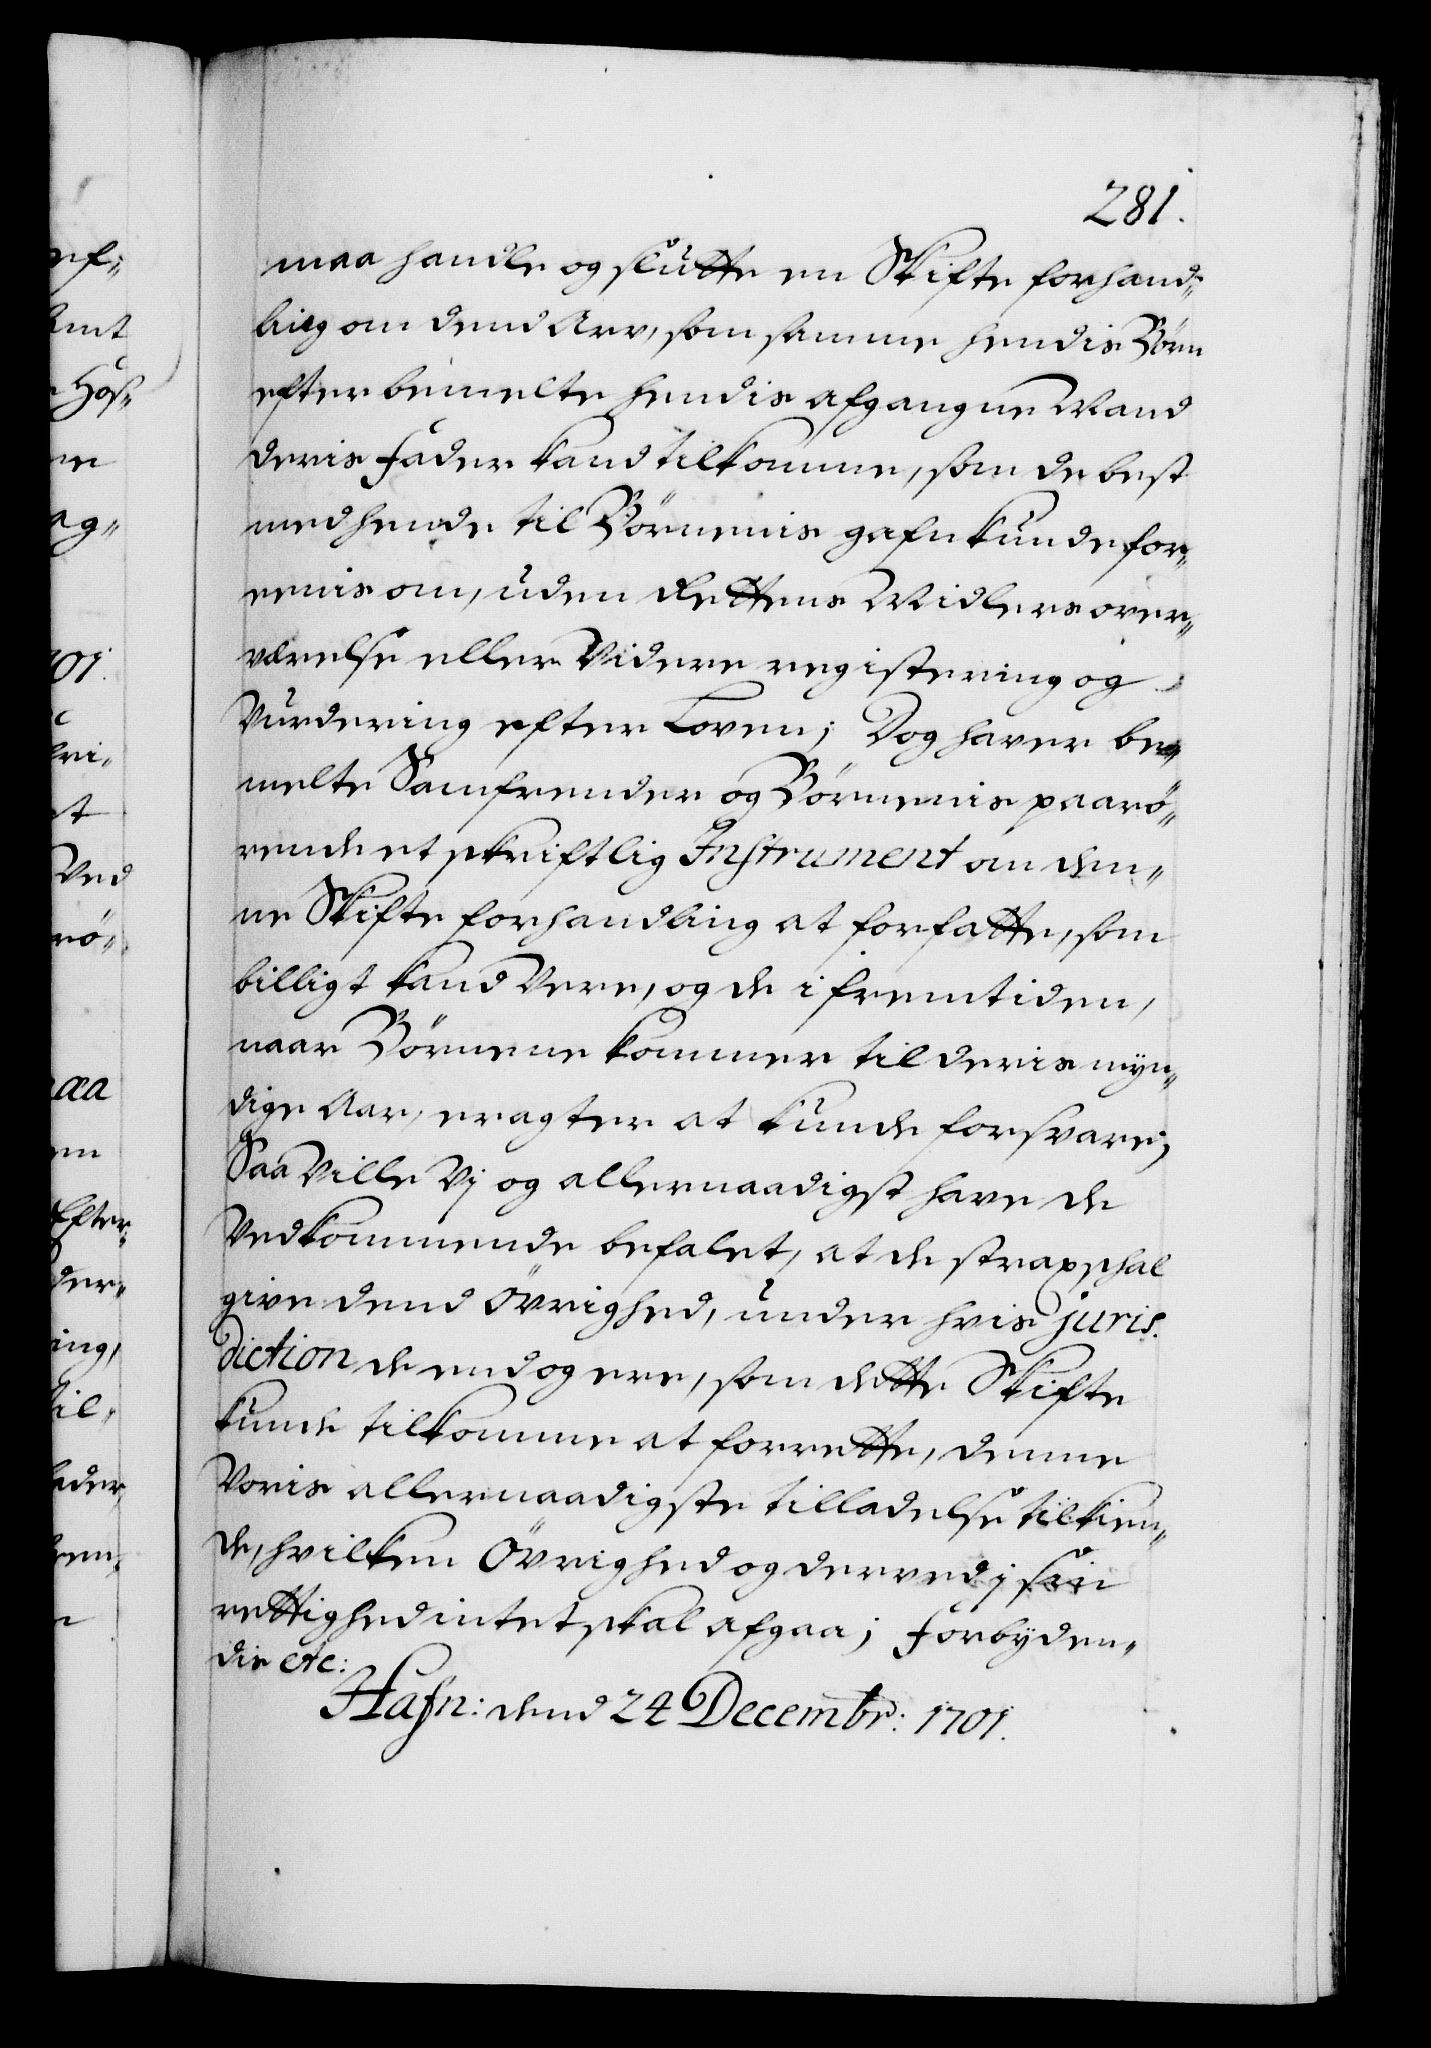 281.
maa handle og slutte en Skifte forhand„
ling om dend Arv, som samme hendis Börn
efter bemelte hendis afgangne Mand
deris Fader kand tilkomme, som de best
med hende til Börnenis gafn kunde for„
eenis om, uden Rettens Midlers over„
værelse eller Videre registering og
Vurdering efter Loven; Dog haver be„
melte Samfrender og Börnenis paarö„
rende et skriftlig Instrument om den„
ne Skifte forhandling at forfatte, som
billigt kand Vere, og de i fremtiden,
naar Börnene kommer til deris myn„
dige Aar, eragter at kunde forsvare;
Saa Ville Vj og allernaadigst have de
Vedkommende befalet, at de strax schal
give dend Övrighed, under hvis juris.
diction de endog ere, som dette Skifte
kunde tilkomme at forrette, denne
Voris allernaadigste tilladelse tilkien„
de, hvilken Övrighed og derved j sin
rettighed intet skal afgaa; Forbyden„
dis etc:
Hafn: dend 24 Decembr: 1701.